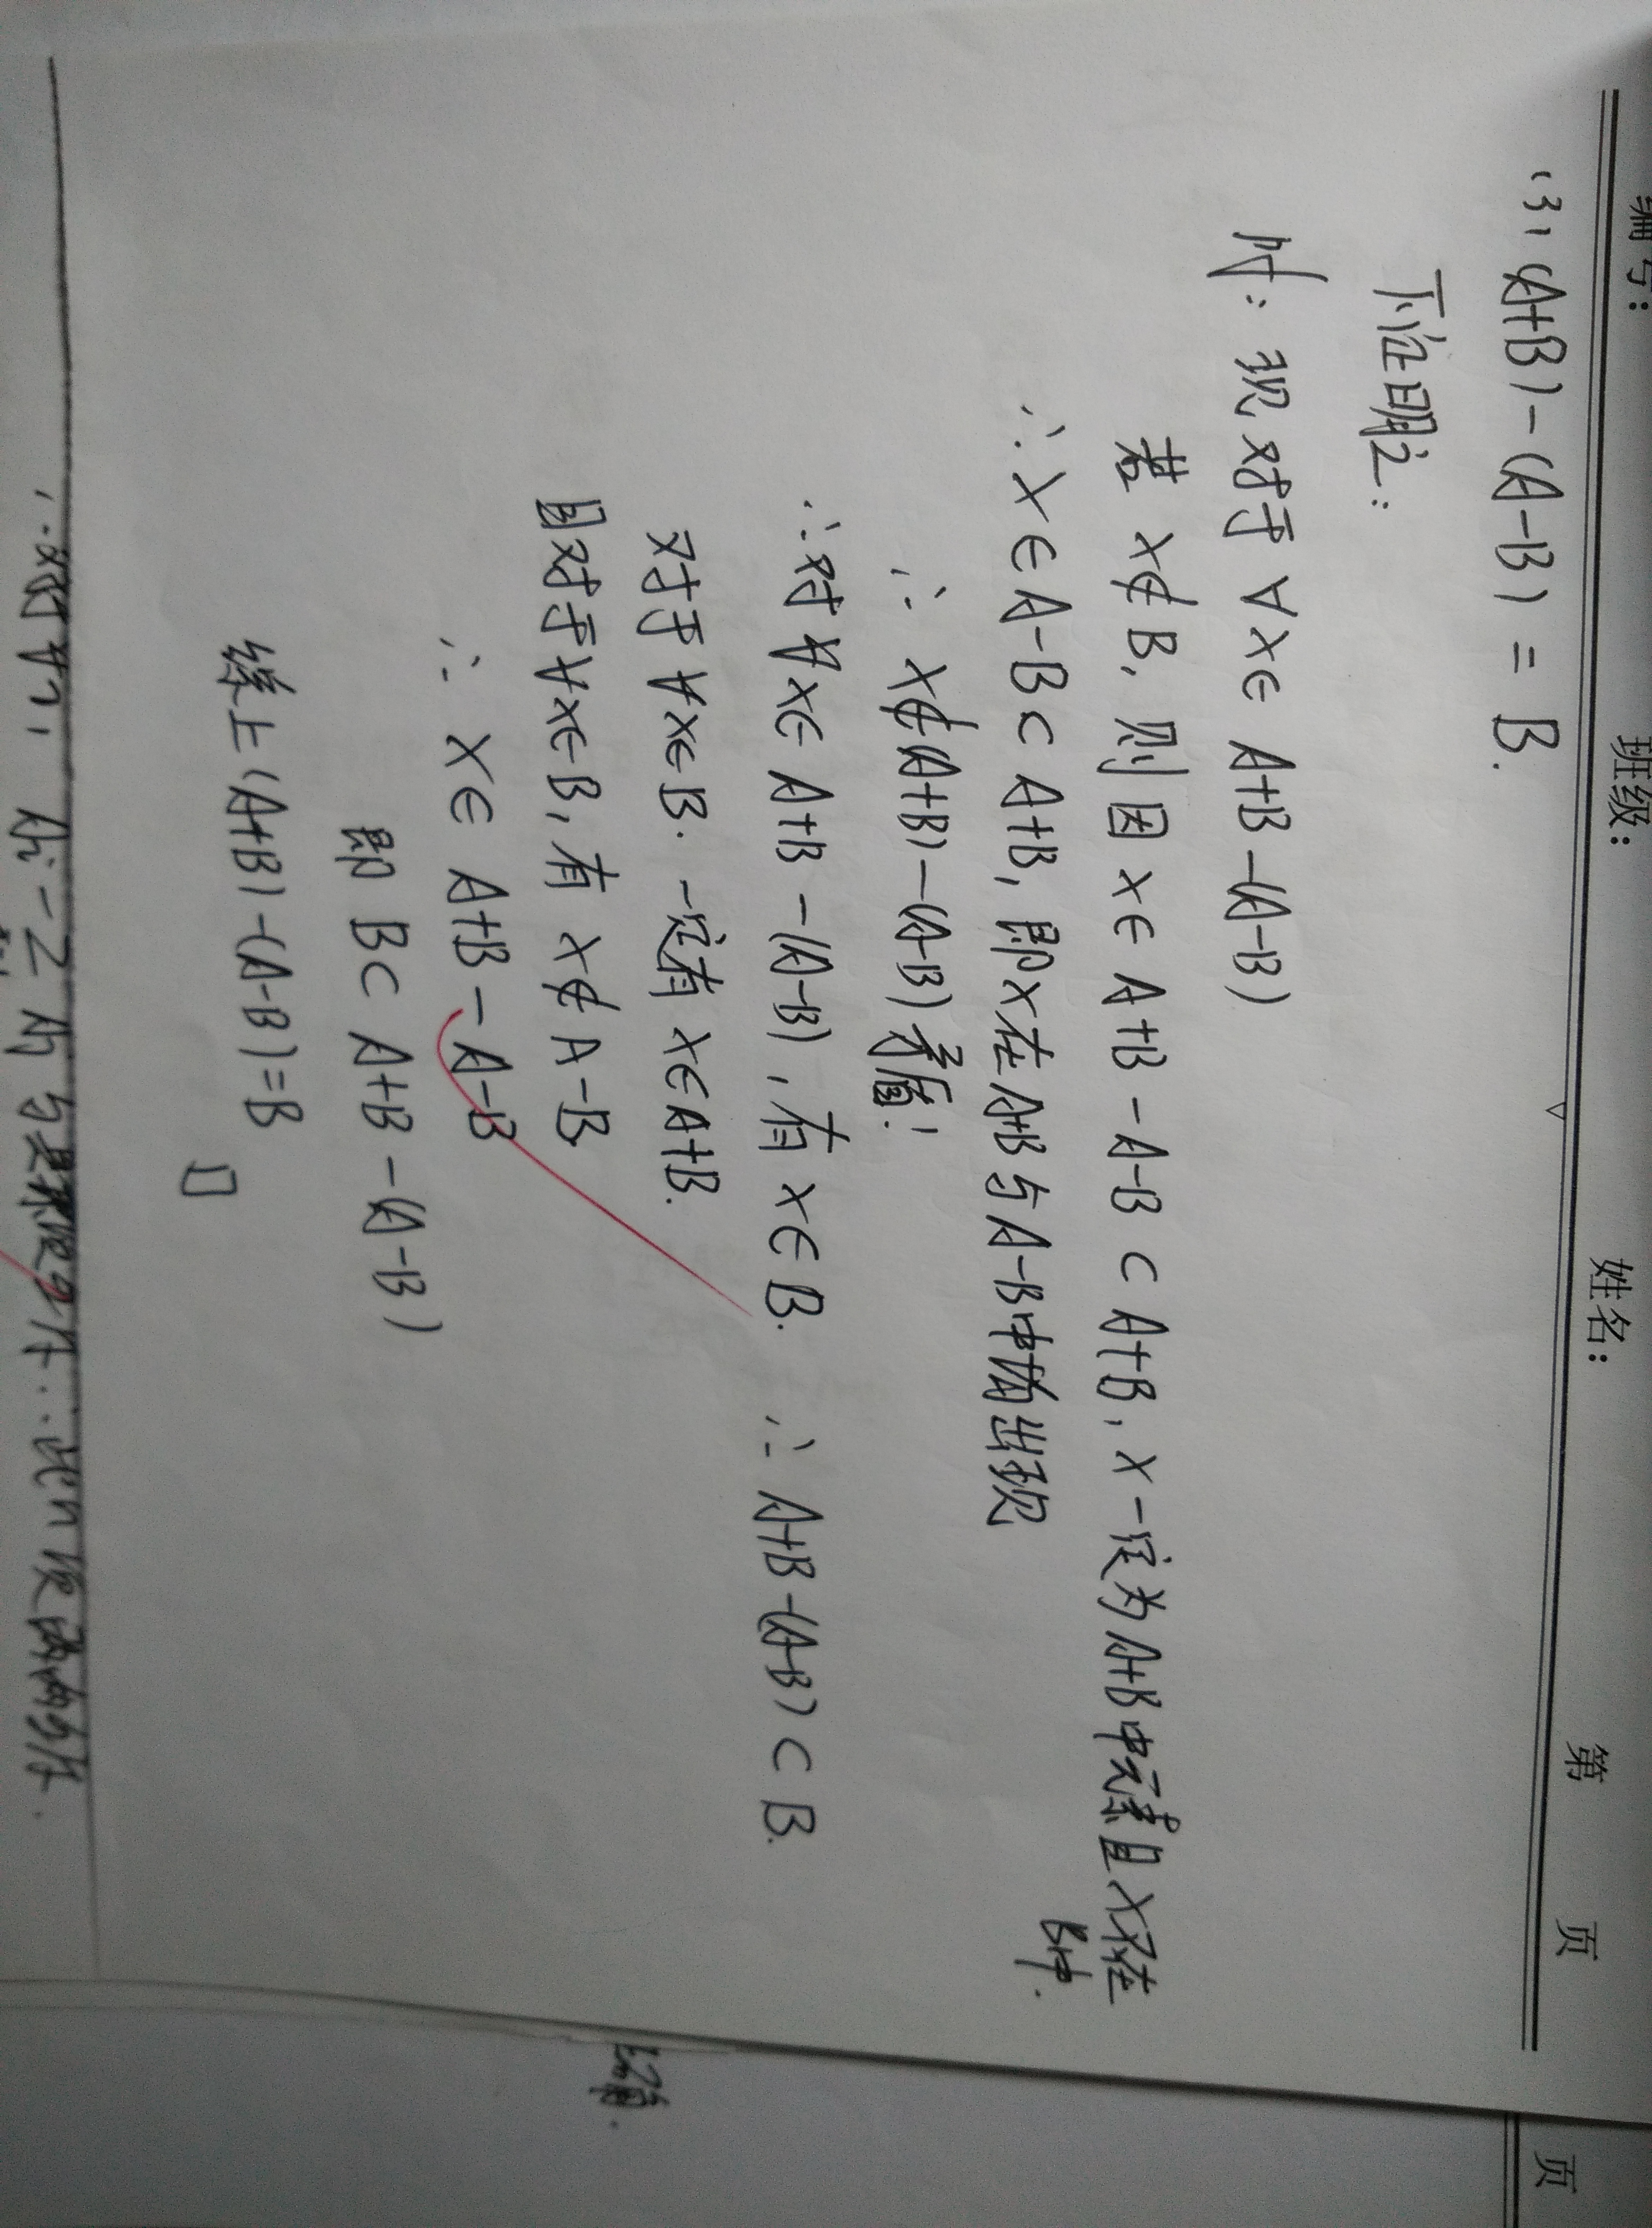 编号： 班级： 姓名： 第 页
(3) (A+B)-(A-B) = B.
下证明之:
对于 ∀x∈ A+B-(A-B)
若 x∉B, 则因 x∈ A+B-A-B ⊂ A+B, x一定为A+B中元素且x不在B中.
∴ x∈A-B⊂A+B, 即x在A+B与A-B中均出现
∴ x∉(A+B)-(A-B) 矛盾!
∴对∀x∈ A+B-(A-B), 有 x∈B. ∴ A+B-(A-B) ⊂ B.
对于∀x∈B. 一定有 x∈A+B.
且对于∀x∈B, 有 x∉A-B
∴ x∈ A+B-A-B
即 B⊂ A+B-(A-B)
综上(A+B)-(A-B)=B
页